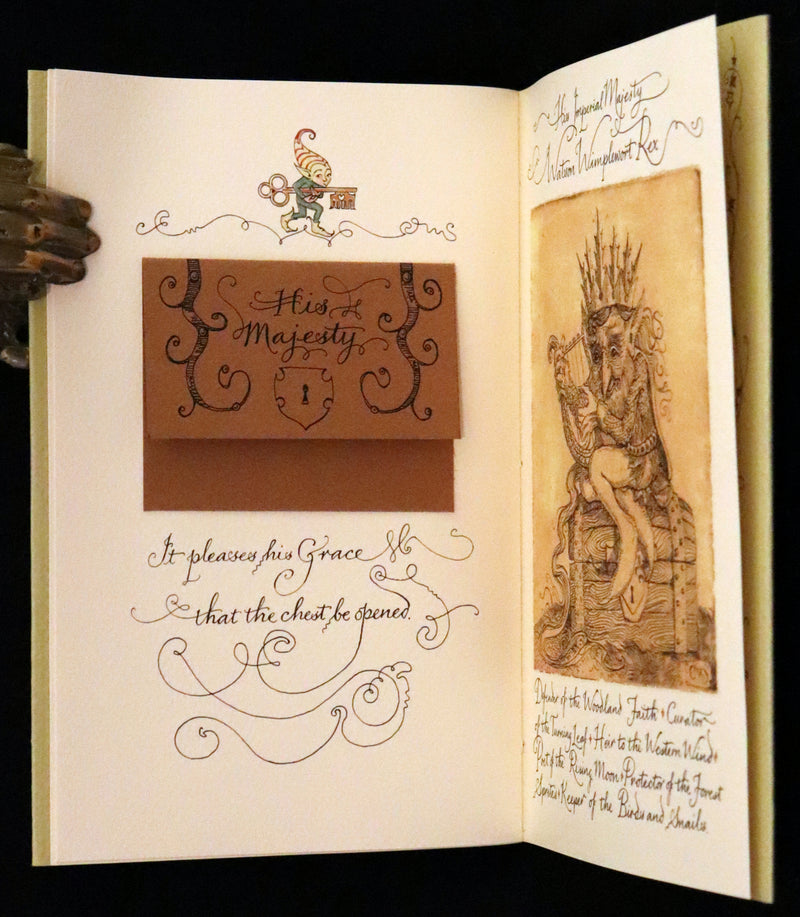 His
Majesty
It pleases his Grace
that the chest be opened.
His Imperial Majesty
Watson Wimplewort Rex
Defender of the Woodland Faith + Curator
of the Turning Leaf + Heir to the Western Wind +
Poet of the Rising Moon + Protector of the Forest
Sprites + Keeper of the Birds and Snails.